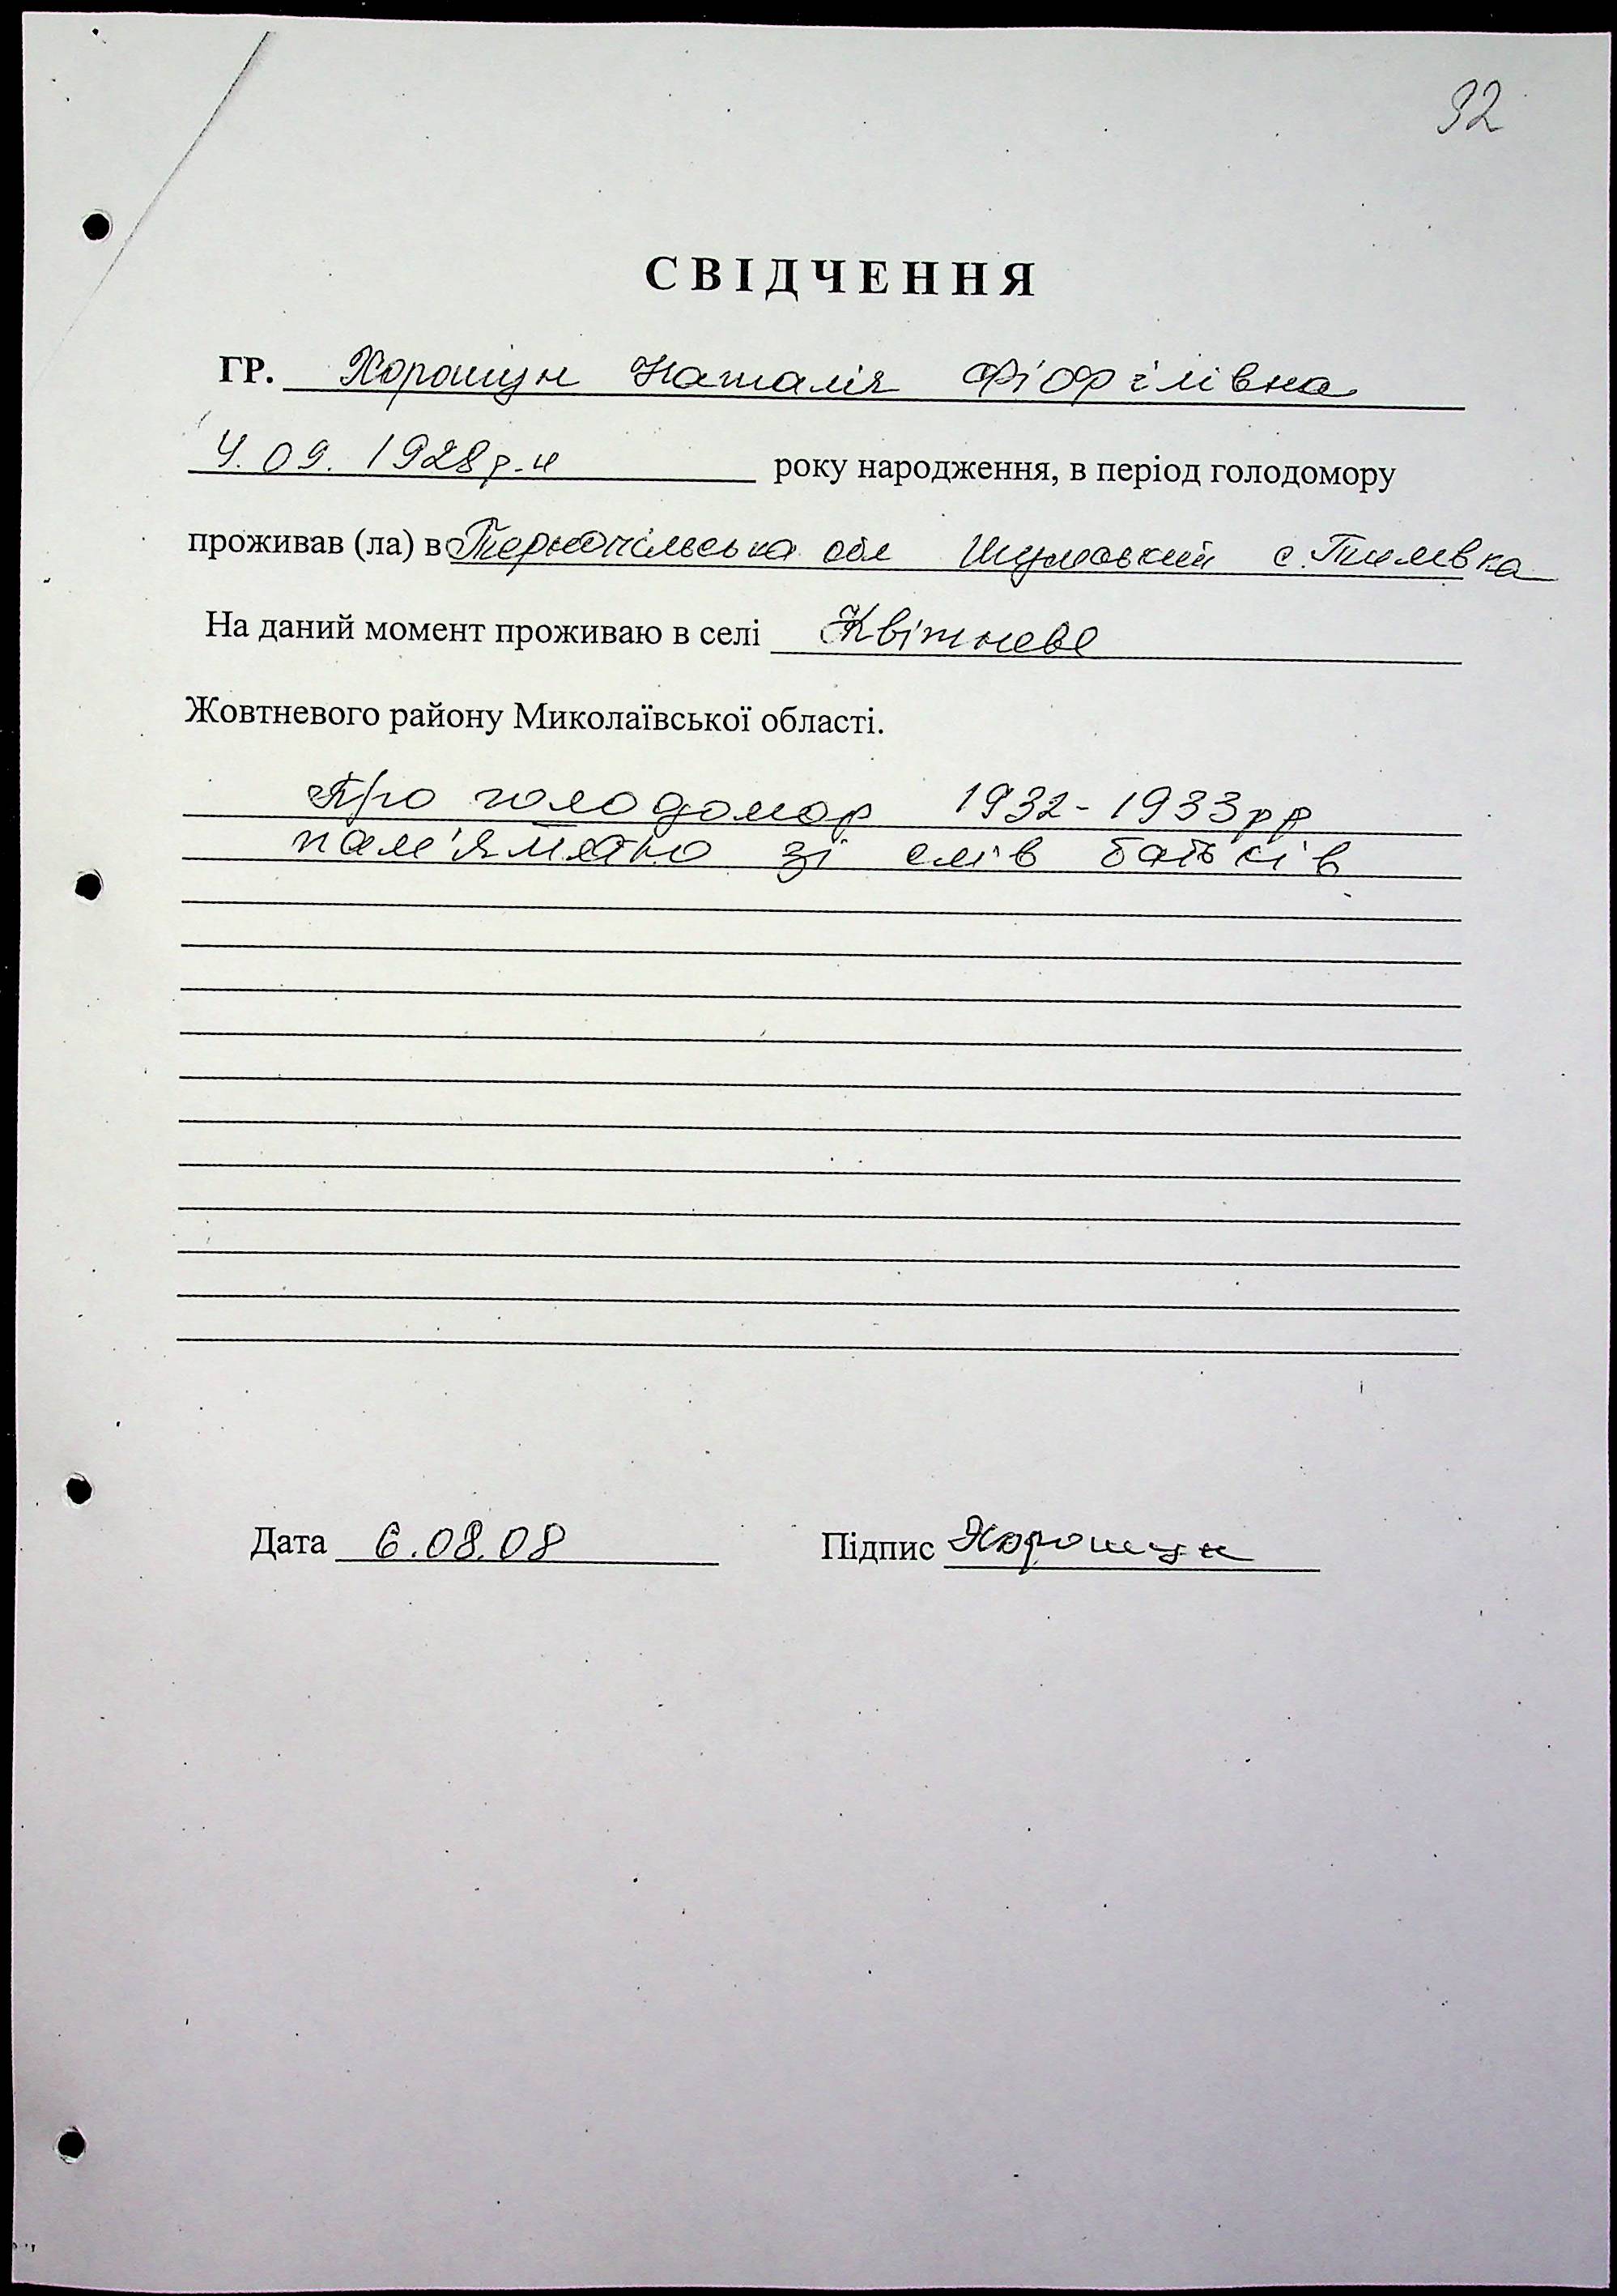 92
СВІДЧЕННЯ
ГР. Хорошун Наталія Фіофілівна
4.09.1928р.н року народження, в період голодомору
проживав (ла) в Тернопільська обл Шумський с. Тилявка
На даний момент проживаю в селі Квітневе
Жовтневого району Миколаївської області.
Про голодомор 1932-1933рр
пам'ятаю зі слів батьків
Дата 6.08.08 Підпис Хорошун